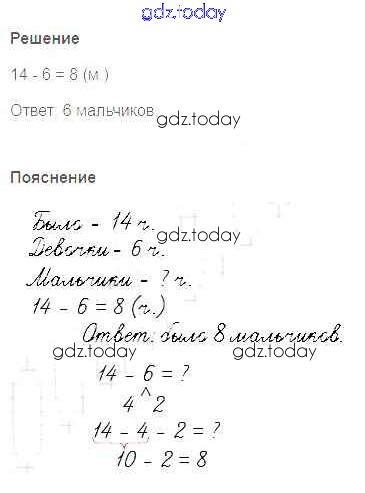 gdz.today
Решение
14 - 6 = 8 (м.)
Ответ: 6 мальчиков
gdz.today
Пояснение
Было - 14 ч.
gdz.today
Девочки - 6 ч.
Мальчики - ? ч.
14 - 6 = 8 (ч.)
Ответ: было 8 мальчиков.
gdz.today gdz.today
14 - 6 = ?
4 2
14 - 4 - 2 = ?
10 - 2 = 8